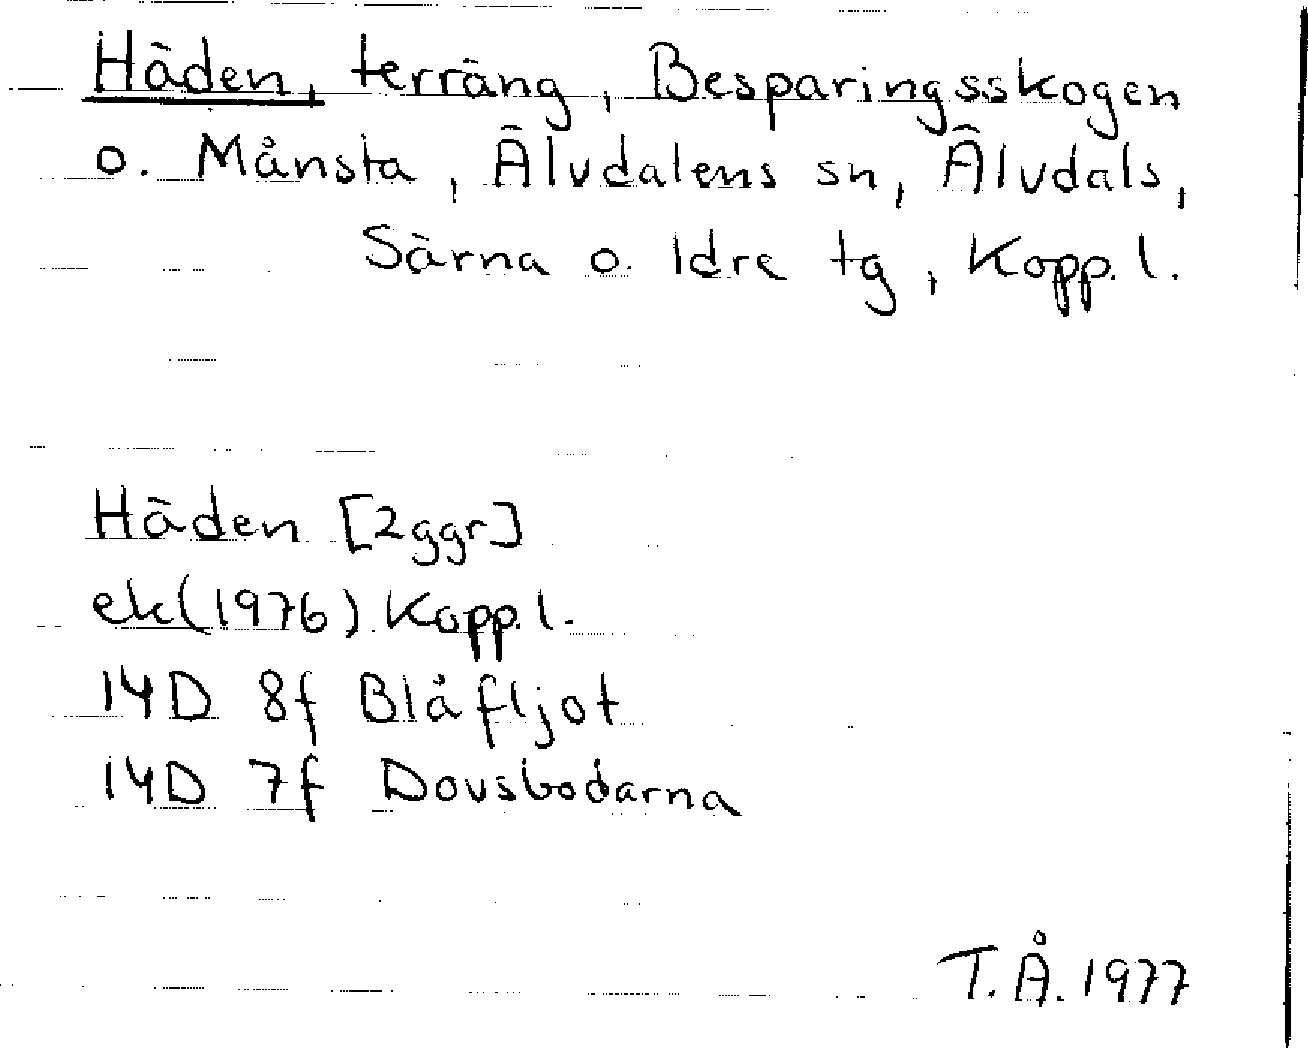 Häden, terräng, Besparingsskogen
o. Månsta, Älvdalens sn, Älvdals,
Särna o. Idre tg, Kopp. l.
Häden [2ggr]
ek(1976) Kopp. l.
14D 8f Blåfljot
14D 7f Dovsbodarna
T.Å. 1977